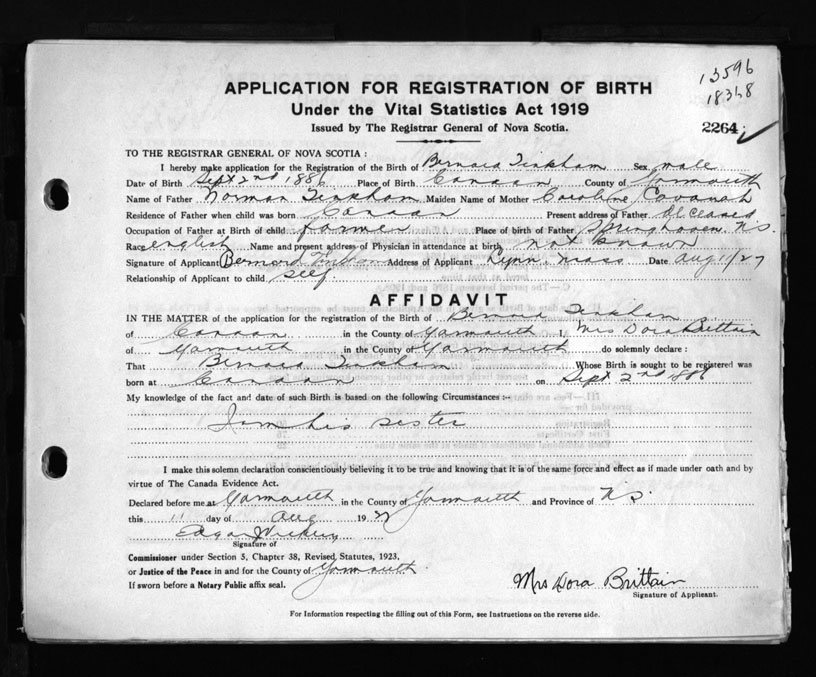 13596
18368
APPLICATION FOR REGISTRATION OF BIRTH
Under the Vital Statistics Act 1919
Issued by The Registrar General of Nova Scotia.
2264
TO THE REGISTRAR GENERAL OF NOVA SCOTIA :
I hereby make application for the Registration of the Birth of Bernard Tinkham Sex male
Date of Birth Sept 2nd 1886 Place of Birth Canaan County of Yarmouth
Name of Father Norman Tinkham Maiden Name of Mother Caroline Cavanah
Residence of Father when child was born Canaan Present address of Father deceased
Occupation of Father at Birth of child farmer Place of birth of Father Springhaven N.S.
Race english Name and present address of Physician in attendance at birth not known
Signature of Applicant Bernard Tinkham Address of Applicant Lynn Mass Date Aug 11/27
Relationship of Applicant to child self
AFFIDAVIT
IN THE MATTER of the application for the registration of the Birth of Tinkham
of Canaan in the County of Yarmouth I, Mrs Dora Brittain
of Yarmouth in the County of Yarmouth do solemnly declare :
That Tinkham Whose Birth is sought to be registered was
born at Canaan on Sept 2nd 1886
My knowledge of the fact and date of such Birth is based on the following Circumstances :-
I am his sister
I make this solemn declaration conscientiously believing it to be true and knowing that it is of the same force and effect as if made under oath and by
virtue of The Canada Evidence Act.
Declared before me at Yarmouth in the County of Yarmouth and Province of N S.
this 11 day of Aug 1927
Edgar
Signature of
Commissioner under Section 5, Chapter 38, Revised Statutes, 1923.
or Justice of the Peace in and for the County of Yarmouth
If sworn before a Notary Public affix seal.
Mrs Dora Brittain
Signature of Applicant.
For Information respecting the filling out of this Form, see Instructions on the reverse side.